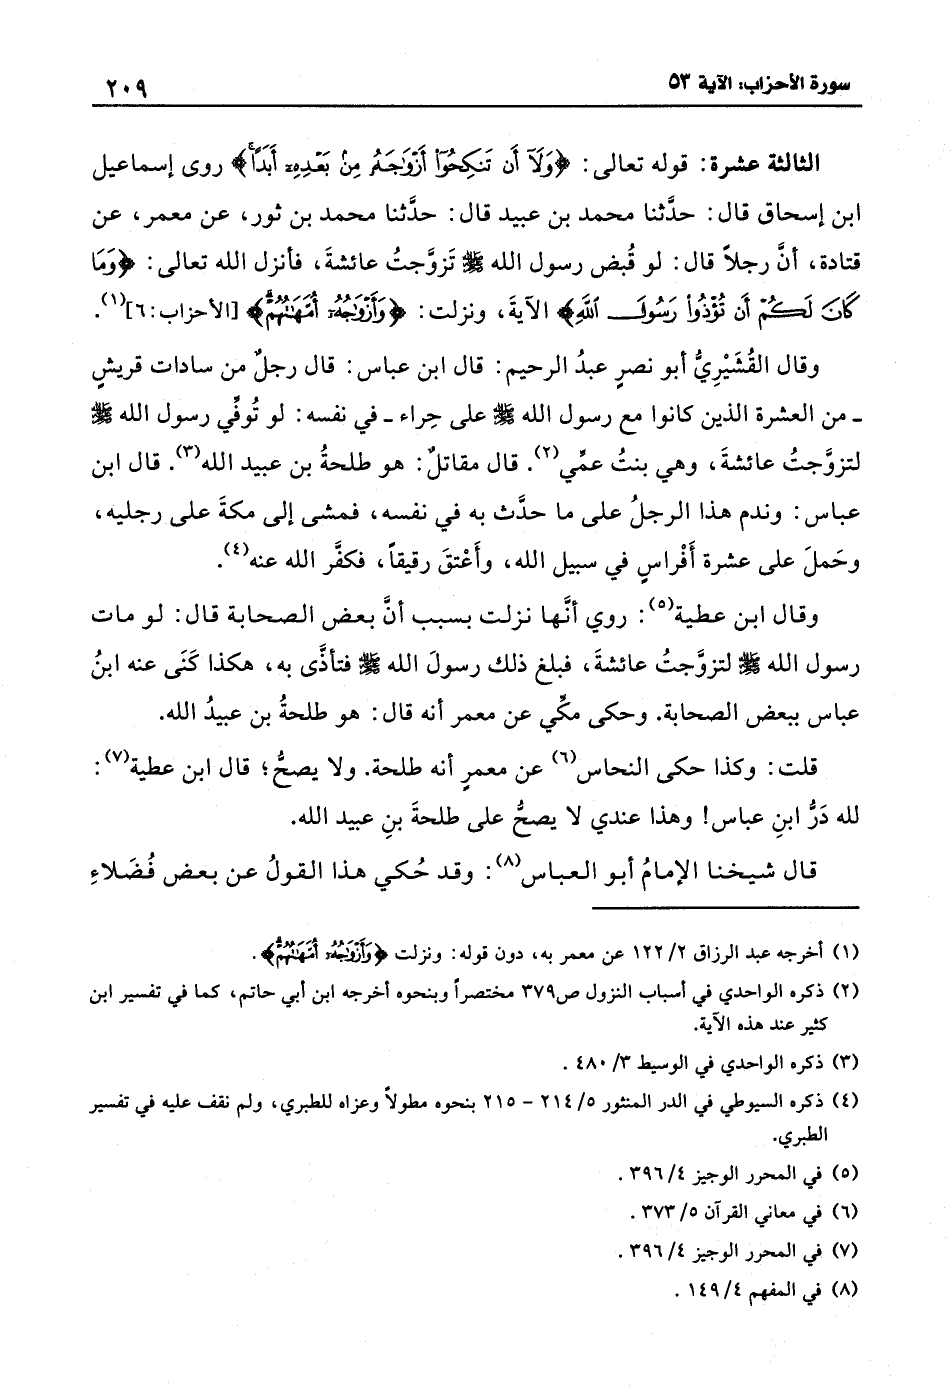 سورة الأحزاب: الآية ٥٣
٢٠٩
الثالثة عشرة: قوله تعالى: ﴿وَلَآ أَن تَنكِحُوٓاْ أَزْوَٰجَهُۥ مِنۢ بَعْدِهِۦٓ أَبَدًاۚ﴾ روى إسماعيل
ابن إسحاق قال: حدَّثنا محمد بن عبيد قال: حدَّثنا محمد بن ثور، عن معمر، عن
قتادة، أنَّ رجلاً قال: لو قُبض رسول الله ﷺ تَزوَّجتُ عائشةَ، فأنزل الله تعالى: ﴿وَمَا
كَانَ لَكُمْ أَن تُؤْذُواْ رَسُولَ ٱللَّهِ﴾ الآيةَ، ونزلت: ﴿وَأَزْوَٰجُهُۥٓ أُمَّهَٰتُهُمْۗ﴾ [الأحزاب:٦](١).
وقال القُشَيْرِيُّ أبو نصرٍ عبدُ الرحيم: قال ابن عباس: قال رجلٌ من سادات قريشٍ
ـ من العشرة الذين كانوا مع رسول الله ﷺ على حِراء ـ في نفسه: لو تُوفِّي رسول الله ﷺ
لتزوَّجتُ عائشةَ، وهي بنتُ عمِّي(٢). قال مقاتلٌ: هو طلحةُ بن عبيد الله(٣). قال ابن
عباس: وندم هذا الرجلُ على ما حدَّث به في نفسه، فمشى إلى مكةَ على رجليه،
وحَملَ على عشرة أَفْراسٍ في سبيل الله، وأَعْتقَ رقيقاً، فكفَّر الله عنه(٤).
وقال ابن عطية(٥): روي أنَّها نزلت بسبب أنَّ بعض الصحابة قال: لو مات
رسول الله ﷺ لتزوَّجتُ عائشةَ، فبلغ ذلك رسولَ الله ﷺ فتأذَّى به، هكذا كَنَى عنه ابنُ
عباس ببعض الصحابة. وحكى مكِّي عن معمر أنه قال: هو طلحةُ بن عبيدُ الله.
قلت: وكذا حكى النحاس(٦) عن معمرٍ أنه طلحة. ولا يصحُّ؛ قال ابن عطية(٧):
لله دَرُّ ابنِ عباس! وهذا عندي لا يصحُّ على طلحةَ بنِ عبيد الله.
قال شيخنا الإمامُ أبو العباس(٨): وقد حُكي هذا القولُ عن بعض فُضَلاءِ
(١) أخرجه عبد الرزاق ٢/ ١٢٢ عن معمر به، دون قوله: ونزلت ﴿وَأَزْوَٰجُهُۥٓ أُمَّهَٰتُهُمْۗ﴾.
(٢) ذكره الواحدي في أسباب النزول ص٣٧٩ مختصراً وبنحوه أخرجه ابن أبي حاتم، كما في تفسير ابن
كثير عند هذه الآية.
(٣) ذكره الواحدي في الوسيط ٣/ ٤٨٠ .
(٤) ذكره السيوطي في الدر المنثور ٥/ ٢١٤ - ٢١٥ بنحوه مطولاً وعزاه للطبري، ولم نقف عليه في تفسير
الطبري.
(٥) في المحرر الوجيز ٤/ ٣٩٦ .
(٦) في معاني القرآن ٥/ ٣٧٣ .
(٧) في المحرر الوجيز ٤/ ٣٩٦ .
(٨) في المفهم ٤/ ١٤٩ .